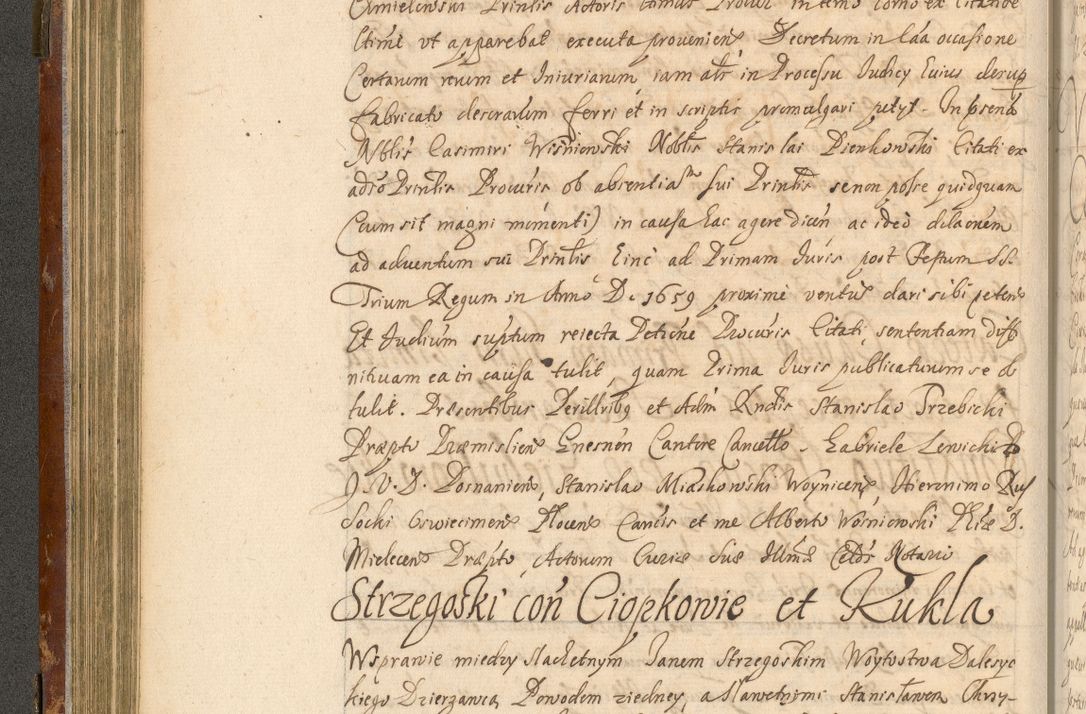 Chmielewski Prntis Actoris comdt Procur in termo horno ex Citaoe
Ctimi vt apparebat executa proveniens Decretum in Caa occasione
Certarum rerum et Iniuriarum iam alr in Processu Iudicy huius desup
fabricato descrarum ferri et in scriptis promulgari petyt. In psena
Nblis Casimiri Wisniowski Noblis Stanis lai Pienkowski Citati ex
adso Prntis Procuris ob absentiam sui Prnlis se non posse quidquam
(cum sit magni momenti) in causa hac agere dicen ac ideo dilaonem
ad adventum sui Prnlis hinc ad Primam Iuris post Festum SS.
Trium Regum in Anno D. 1659 proxime ventu dari sibi petens
Et Iudium suptum reiecta Petione Procuris Citati, sententiam diff
nitivam ea in causa tulit, quam Prima Iuris publicaturum se ob
tulit. Præsentibus Perillribq et Adm Rndis Stanislao Trzebicki
Præpto Præmislien Gnesnen Cantore Cancello. Gabriele Lewicki D
I. V. D. Posnaniens, Stanislao Miaskowski Woynicens, Hieronimo Rus
Socki Oswiecimens Plocens Cancis et me Alberto Wosniowski Phiæ D.
Mielecens Præpto, Actorum Curiæ suæ Illmæ Celds Notario
Strzegoski con Ciopkowie et Kukla
W sprawie miedzy slachetnym Ianem Strzegoskim Woytostwa Dalesyc
kiego Dzierzawcą Powodem ziedney, a Slawetnimi Stanisławem Chrzy-